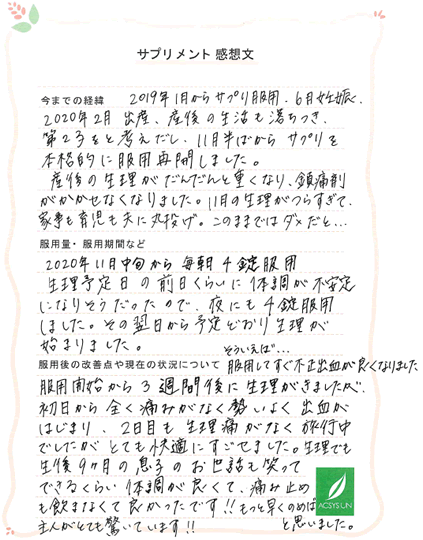 サプリメント 感想文
今までの経緯 2019年1月からサプリ服用、6月妊娠、
2020年2月 出産、産後の生活も落ちつき、
第2子をと考えだし、11月半ばから サプリを
本格的に服用再開しました。
産後の生理がだんだんと重くなり、鎮痛剤
がかかせなくなりました。11月の生理がつらすぎて、
家事も育児も夫に丸投げ。このままではダメだと…
服用量・服用期間など
2020年11月中旬から 毎朝 4錠服用
生理予定日の前日くらいに体調が不安定
になりそうだったので、夜にも4錠服用
しました。その翌日から予定どおり生理が
始まりました。
そういえば…
服用後の改善点や現在の状況について 服用してすぐ不正出血が良くなりました
服用開始から3週間後に生理がきましたが、
初日から全く痛みがなく勢いよく出血が
はじまり、2日目も生理痛がなく旅行中
でしたがとても快適にすごせました。生理でも
生後9ヶ月の息子のお世話も笑って
できるくらい体調が良くて、痛み止め
も飲まなくて良かったです!! もっと早くのめば
主人がとても驚いています!! と思いました。
ACSYSUN